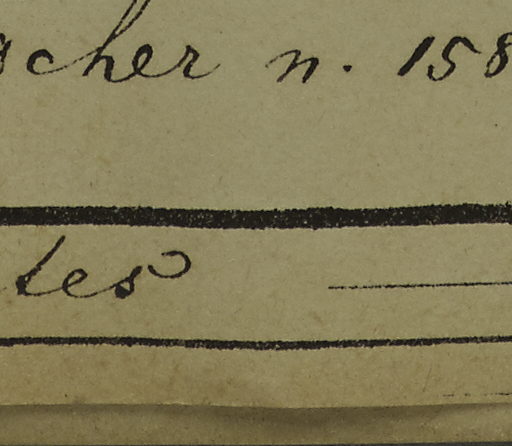 scher n. 158
tes